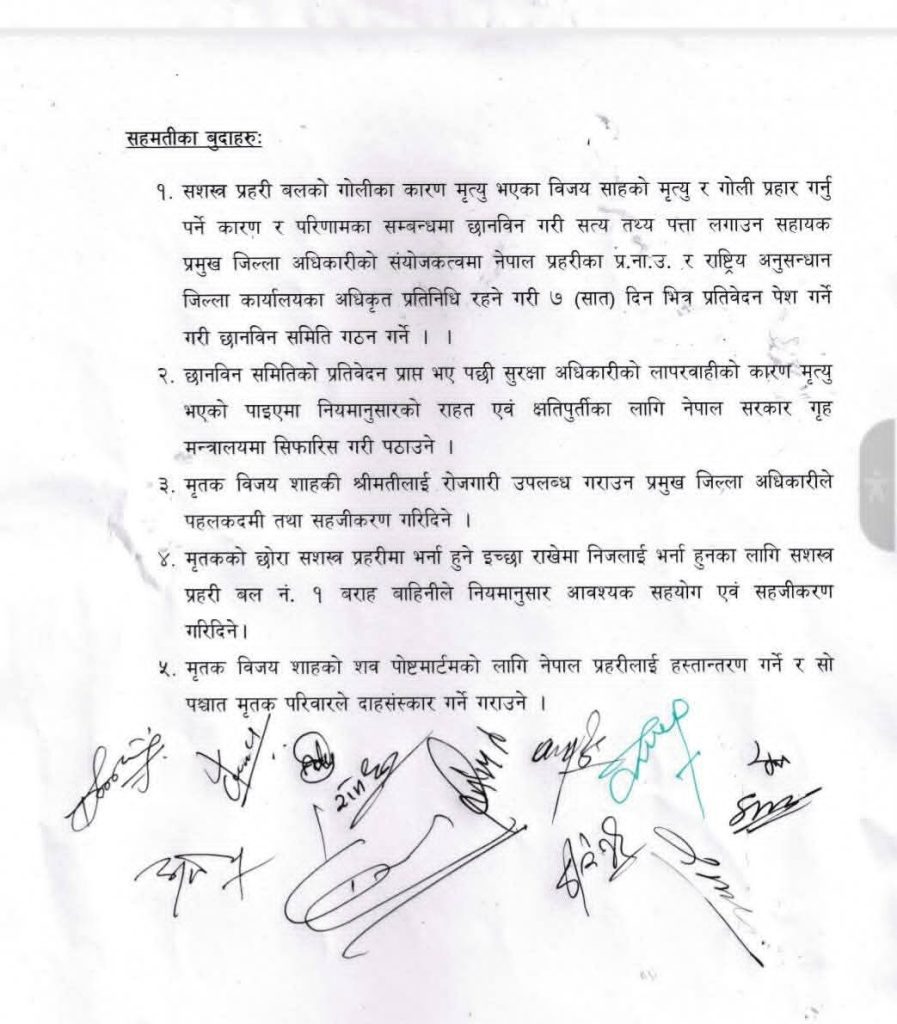 सहमतीका बुदाहरु:
१. सशस्त्र प्रहरी बलको गोलीका कारण मृत्यु भएका विजय साहको मृत्यु र गोली प्रहार गर्नु
पर्ने कारण र परिणामका सम्बन्धमा छानविन गरी सत्य तथ्य पत्ता लगाउन सहायक
प्रमुख जिल्ला अधिकारीको संयोजकत्वमा नेपाल प्रहरीका प्र.ना.उ. र राष्ट्रिय अनुसन्धान
जिल्ला कार्यालयका अधिकृत प्रतिनिधि रहने गरी ७ (सात) दिन भित्र प्रतिवेदन पेश गर्ने
गरी छानविन समिति गठन गर्ने । ।
२. छानविन समितिको प्रतिवेदन प्राप्त भए पछी सुरक्षा अधिकारीको लापरवाहीको कारण मृत्यु
भएको पाइएमा नियमानुसारको राहत एवं क्षतिपुर्तीका लागि नेपाल सरकार गृह
मन्त्रालयमा सिफारिस गरी पठाउने ।
३. मृतक विजय शाहकी श्रीमतीलाई रोजगारी उपलब्ध गराउन प्रमुख जिल्ला अधिकारीले
पहलकदमी तथा सहजीकरण गरिदिने ।
४. मृतकको छोरा सशस्त्र प्रहरीमा भर्ना हुने इच्छा राखेमा निजलाई भर्ना हुनका लागि सशस्त्र
प्रहरी बल नं. १ बराह बाहिनीले नियमानुसार आवश्यक सहयोग एवं सहजीकरण
गरिदिने।
५. मृतक विजय शाहको शव पोष्टमार्टमको लागि नेपाल प्रहरीलाई हस्तान्तरण गर्ने र सो
पश्चात मृतक परिवारले दाहसंस्कार गर्ने गराउने ।